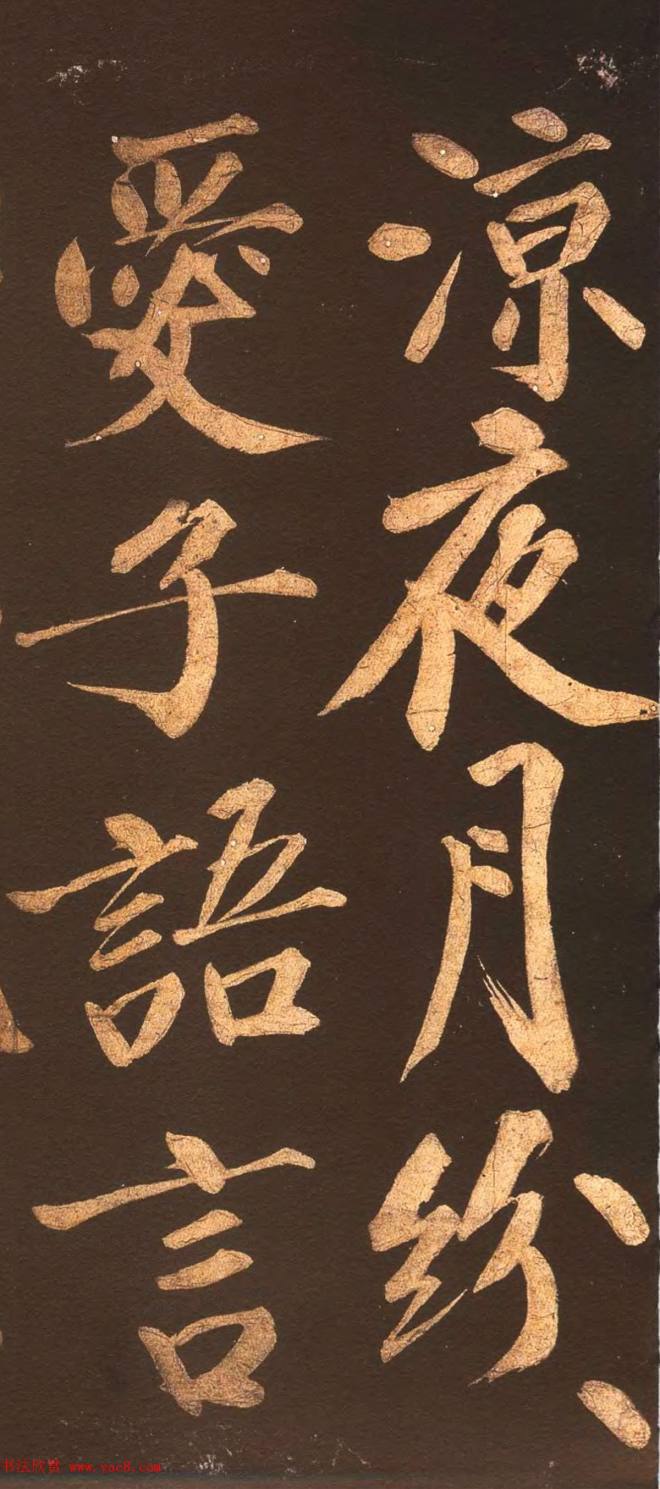 凉夜月紛〻
愛子語言
书法欣赏 www.yac8.com